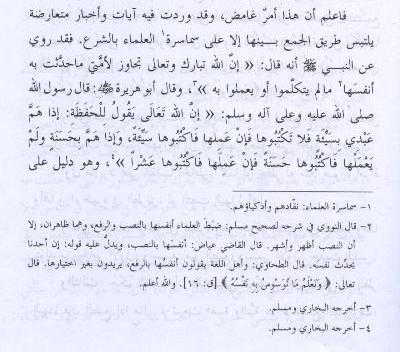 فاعلم أن هذا أمرٌ غامض، وقد وردت فيه آيات وأخبار متعارضة
يلتبس طريق الجمع بينها إلا على سماسرة¹ العلماء بالشرع. فقد روي
عن النبي ﷺ أنه قال: « إنَّ الله تبارك وتعالى تجاوز لأمَّتي ماحدَّثت به
أنفسَها² مالم يتكلَّموا أو يعملوا به »³، وقال أبو هريرة ﷺ: قال رسول الله
صلى الله عليه وعلى آله وسلم: « إنَّ اللهَ تَعَالَى يَقُولُ لِلْحَفَظَةِ: إِذَا هَمَّ
عَبْدِي بسَيِّئَةٍ فَلا تَكْتُبُوها فَإنْ عَمِلها فَاكْتُبُوها سَيِّئَةً، وَإِذَا هَمَّ بِحَسَنَةٍ ولَمْ
يَعْمَلْها فَاكْتُبُوها حَسَنَةً فَإنْ عَمِلَها فَاكْتُبُوها عَشْراً »⁴، وهو دليل على
١- سماسرة العلماء: نقّادهم وأذكياؤهم.
٢- قال النووي في شرحه لصحيح مسلم: ضبَطَ العلماء أنفسها بالنصب والرفع، وهما ظاهران، إلا
أن النصب أظهر وأشهر. قال القاضي عياض: أنفسَها بالنصب، ويدلُّ عليه قوله: إن أحدنا
يحدِّث نفسَه. قال الطحاوي: وأهل اللغة يقولون أنفسُها بالرفع، يريدون بغير اختيارها. قال
تعالى: ﴿ وَنَعْلَمُ مَا تُوَسْوِسُ بِهِ نَفْسُهُ ﴾ [ق: ١٦]. والله أعلم.
٣- أخرجه البخاري ومسلم.
٤- أخرجه البخاري ومسلم.